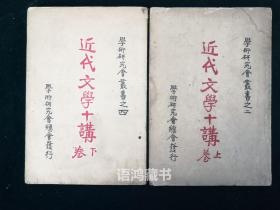 學術研究會叢書之二
近代文學十講
上卷
學術研究會總會發行
學術研究會叢書之四
近代文學十講
下卷
學術研究會總會發行
语鸿藏书